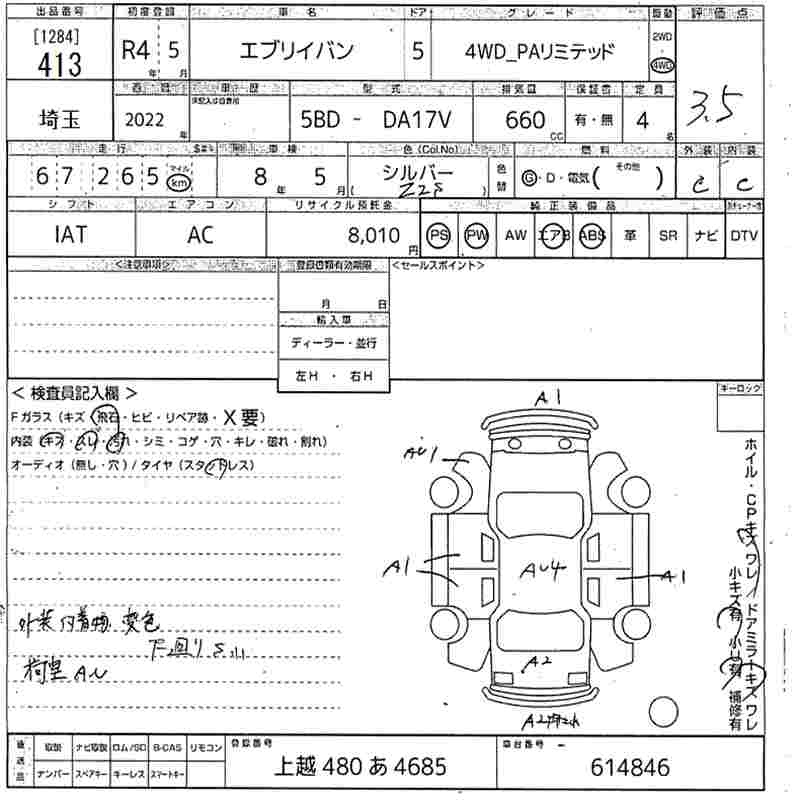 出品番号 初度登録 車名 ドア グレード 駆動 評価点
[1284]
413 R4 年 5 月 エブリイバン 5 4WD_PAリミテッド 2WD 4WD
3.5
車歴 型式 排気量 保証書 定員
埼玉 2022 年 5BD - DA17V 660 CC 有・無 4 名
走行 車検 色(Col.No) 燃料 外装 内装
67265 マイル km 8 年 5 月 シルバー 色替 G・D・電気( その他 ) C C
( Z2S )
シフト エアコン リサイクル預託金 純正装備品
IAT AC 8,010 円 PS PW AW エアB ABS 革 SR ナビ DTV
<注意事項> 登録書類有効期限 <セールスポイント>
月 日
輸入車
ディーラー・並行
左H ・ 右H
< 検査員記入欄 > キーロック
Fガラス (キズ・飛石・ヒビ・リペア跡・X要)
内装 (キズ・スレ・汚れ・シミ・コゲ・穴・キレ・破れ・割れ)
オーディオ (無し・穴) / タイヤ (スタッドレス)
A1
AU1
A1
AU4
A1
A2
ホイル・CPキズワレ / ドアミラーキズワレ
小キズ有 小U有 補修有
変色
下回りS
AU
後送品 取説 ナビ取説 ロム/SD B-CAS リモコン 登録番号 車台番号
ナンバー スペアキー キーレス スマートキー 上越 480 あ 4685 614846